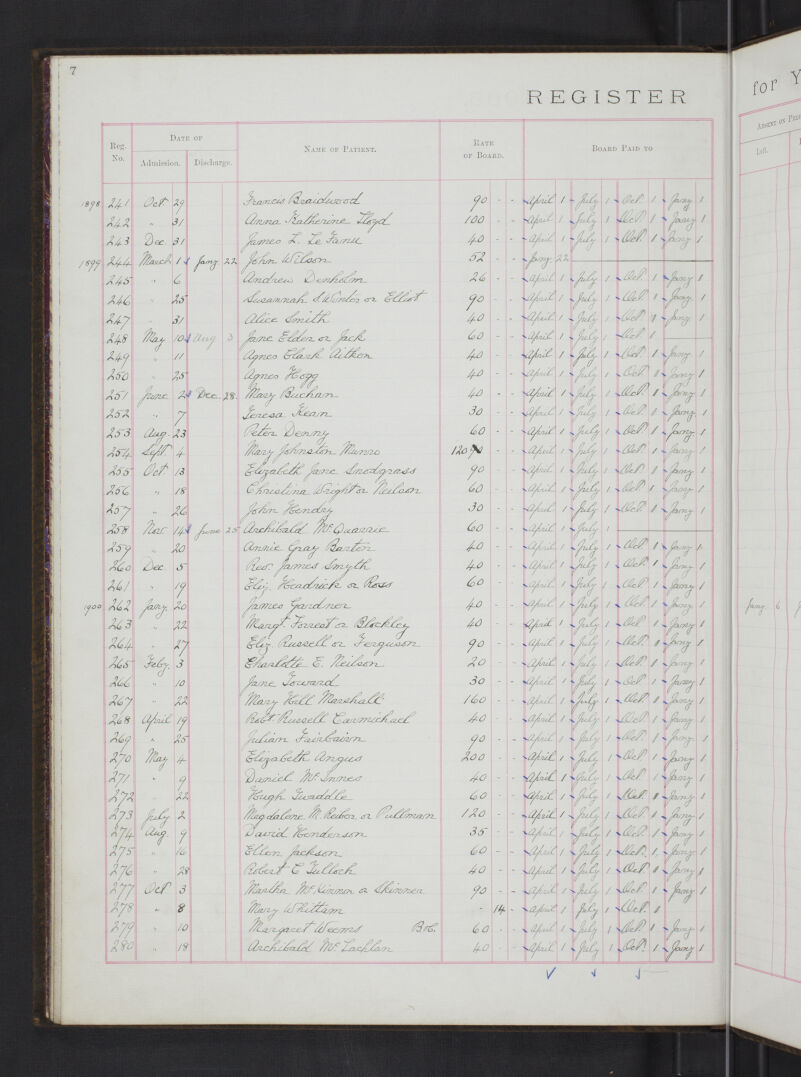 7
REGISTER
for Y
Reg. No. DATE OF Admission. Discharge. NAME OF PATIENT. RATE OF BOARD. BOARD PAID TO
Left.
1898 241 Oct 29 Francis Braidwood 90 - - April 1 July 1 Oct 1 Jany 1
242 " 31 Anna Katherine Lloyd 100 - - April 1 July 1 Oct 1 Jany 1
243 Dec 31 James L. Le Fanu 40 - - April 1 July 1 Oct 1 Jany 1
1899 244 March 1 Jany 22 John Wilson 52 - - Jany 22
245 " 6 Andrew Denholm 26 - - April 1 July 1 Oct 1 Jany 1
246 " 25 Susannah S. Winton or Elliot 90 - - April 1 July 1 Oct 1 Jany 1
247 " 31 Alice Smith 40 - - April 1 July 1 Oct 1 Jany 1
248 May 10 Aug 3 Jane Elder or Jack 60 - - April 1 July 1 Oct 1
249 " 11 Agnes Clark Aitken 40 - - April 1 July 1 Oct 1 Jany 1
250 " 25 Agnes Hogg 40 - - April 1 July 1 Oct 1 Jany 1
251 June 2 Dec 28 Mary Buchan 40 - - April 1 July 1 Oct 1 Jany 1
252 " 7 Teresa Kean 30 - - April 1 July 1 Oct 1 Jany 1
253 Aug 23 Peter Denny 60 - - April 1 July 1 Oct 1 Jany 1
254 Sept 4 Mary Johnston Munro 120 - - April 1 July 1 Oct 1 Jany 1
255 Oct 13 Elizabeth Jane Snodgrass 90 - - April 1 July 1 Oct 1 Jany 1
256 " 18 Christina Wright or Neilson 60 - - April 1 July 1 Oct 1 Jany 1
257 " 26 John Hendry 30 - - April 1 July 1 Oct 1 Jany 1
258 Nov 14 June 25 Archibald McQuarrie 60 - - April 1 July 1
259 " 20 Annie Gray Barton 40 - - April 1 July 1 Oct 1 Jany 1
260 Dec 5 Rev. James Smyth 40 - - April 1 July 1 Oct 1 Jany 1
261 " 19 Eliz. Headrick or Ross 60 - - April 1 July 1 Oct 1 Jany 1
1900 262 Jany 20 James Gardner 40 - - April 1 July 1 Oct 1 Jany 1 Jany 6
263 " 22 Margt. Forrest or Blockley 40 - - April 1 July 1 Oct 1 Jany 1
264 " 27 Eliz Russell or Ferguson 90 - - April 1 July 1 Oct 1 Jany 1
265 Feby 3 Charlotte E. Neilson 20 - - April 1 July 1 Oct 1 Jany 1
266 " 10 Jane Toward 30 - - April 1 July 1 Oct 1 Jany 1
267 " 22 Mary Hill Marshall 160 - - April 1 July 1 Oct 1 Jany 1
268 April 19 Robt Russell Carmichael 40 - - April 1 July 1 Oct 1 Jany 1
269 " 25 Julian Fairbairn 90 - - April 1 July 1 Oct 1 Jany 1
270 May 4 Elizabeth Angus 200 - - April 1 July 1 Oct 1 Jany 1
271 " 9 Daniel McInnes 40 - - April 1 July 1 Oct 1 Jany 1
272 22 Hugh Twaddle 60 - - April 1 July 1 Oct 1 Jany 1
273 July 2 Magdalene M. Reiben or Pullman 120 - - April 1 July 1 Oct 1 Jany 1
274 Aug 9 David Henderson 35 - - April 1 July 1 Oct 1 Jany 1
275 " 16 Ellen Jackson 60 - - April 1 July 1 Oct 1 Jany 1
276 " 28 Robert C Tulloch 40 - - April 1 July 1 Oct 1 Jany 1
277 Oct 3 Martha McKinnon or Skinner 90 - - April 1 July 1 Oct 1 Jany 1
278 " 8 Mary Whittam - 14 - April 1 July 1 Oct 1
279 " 10 Margaret Weems 60 - - April 1 July 1 Oct 1 Jany 1
280 " 18 Archibald McLachlan 40 - - April 1 July 1 Oct 1 Jany 1